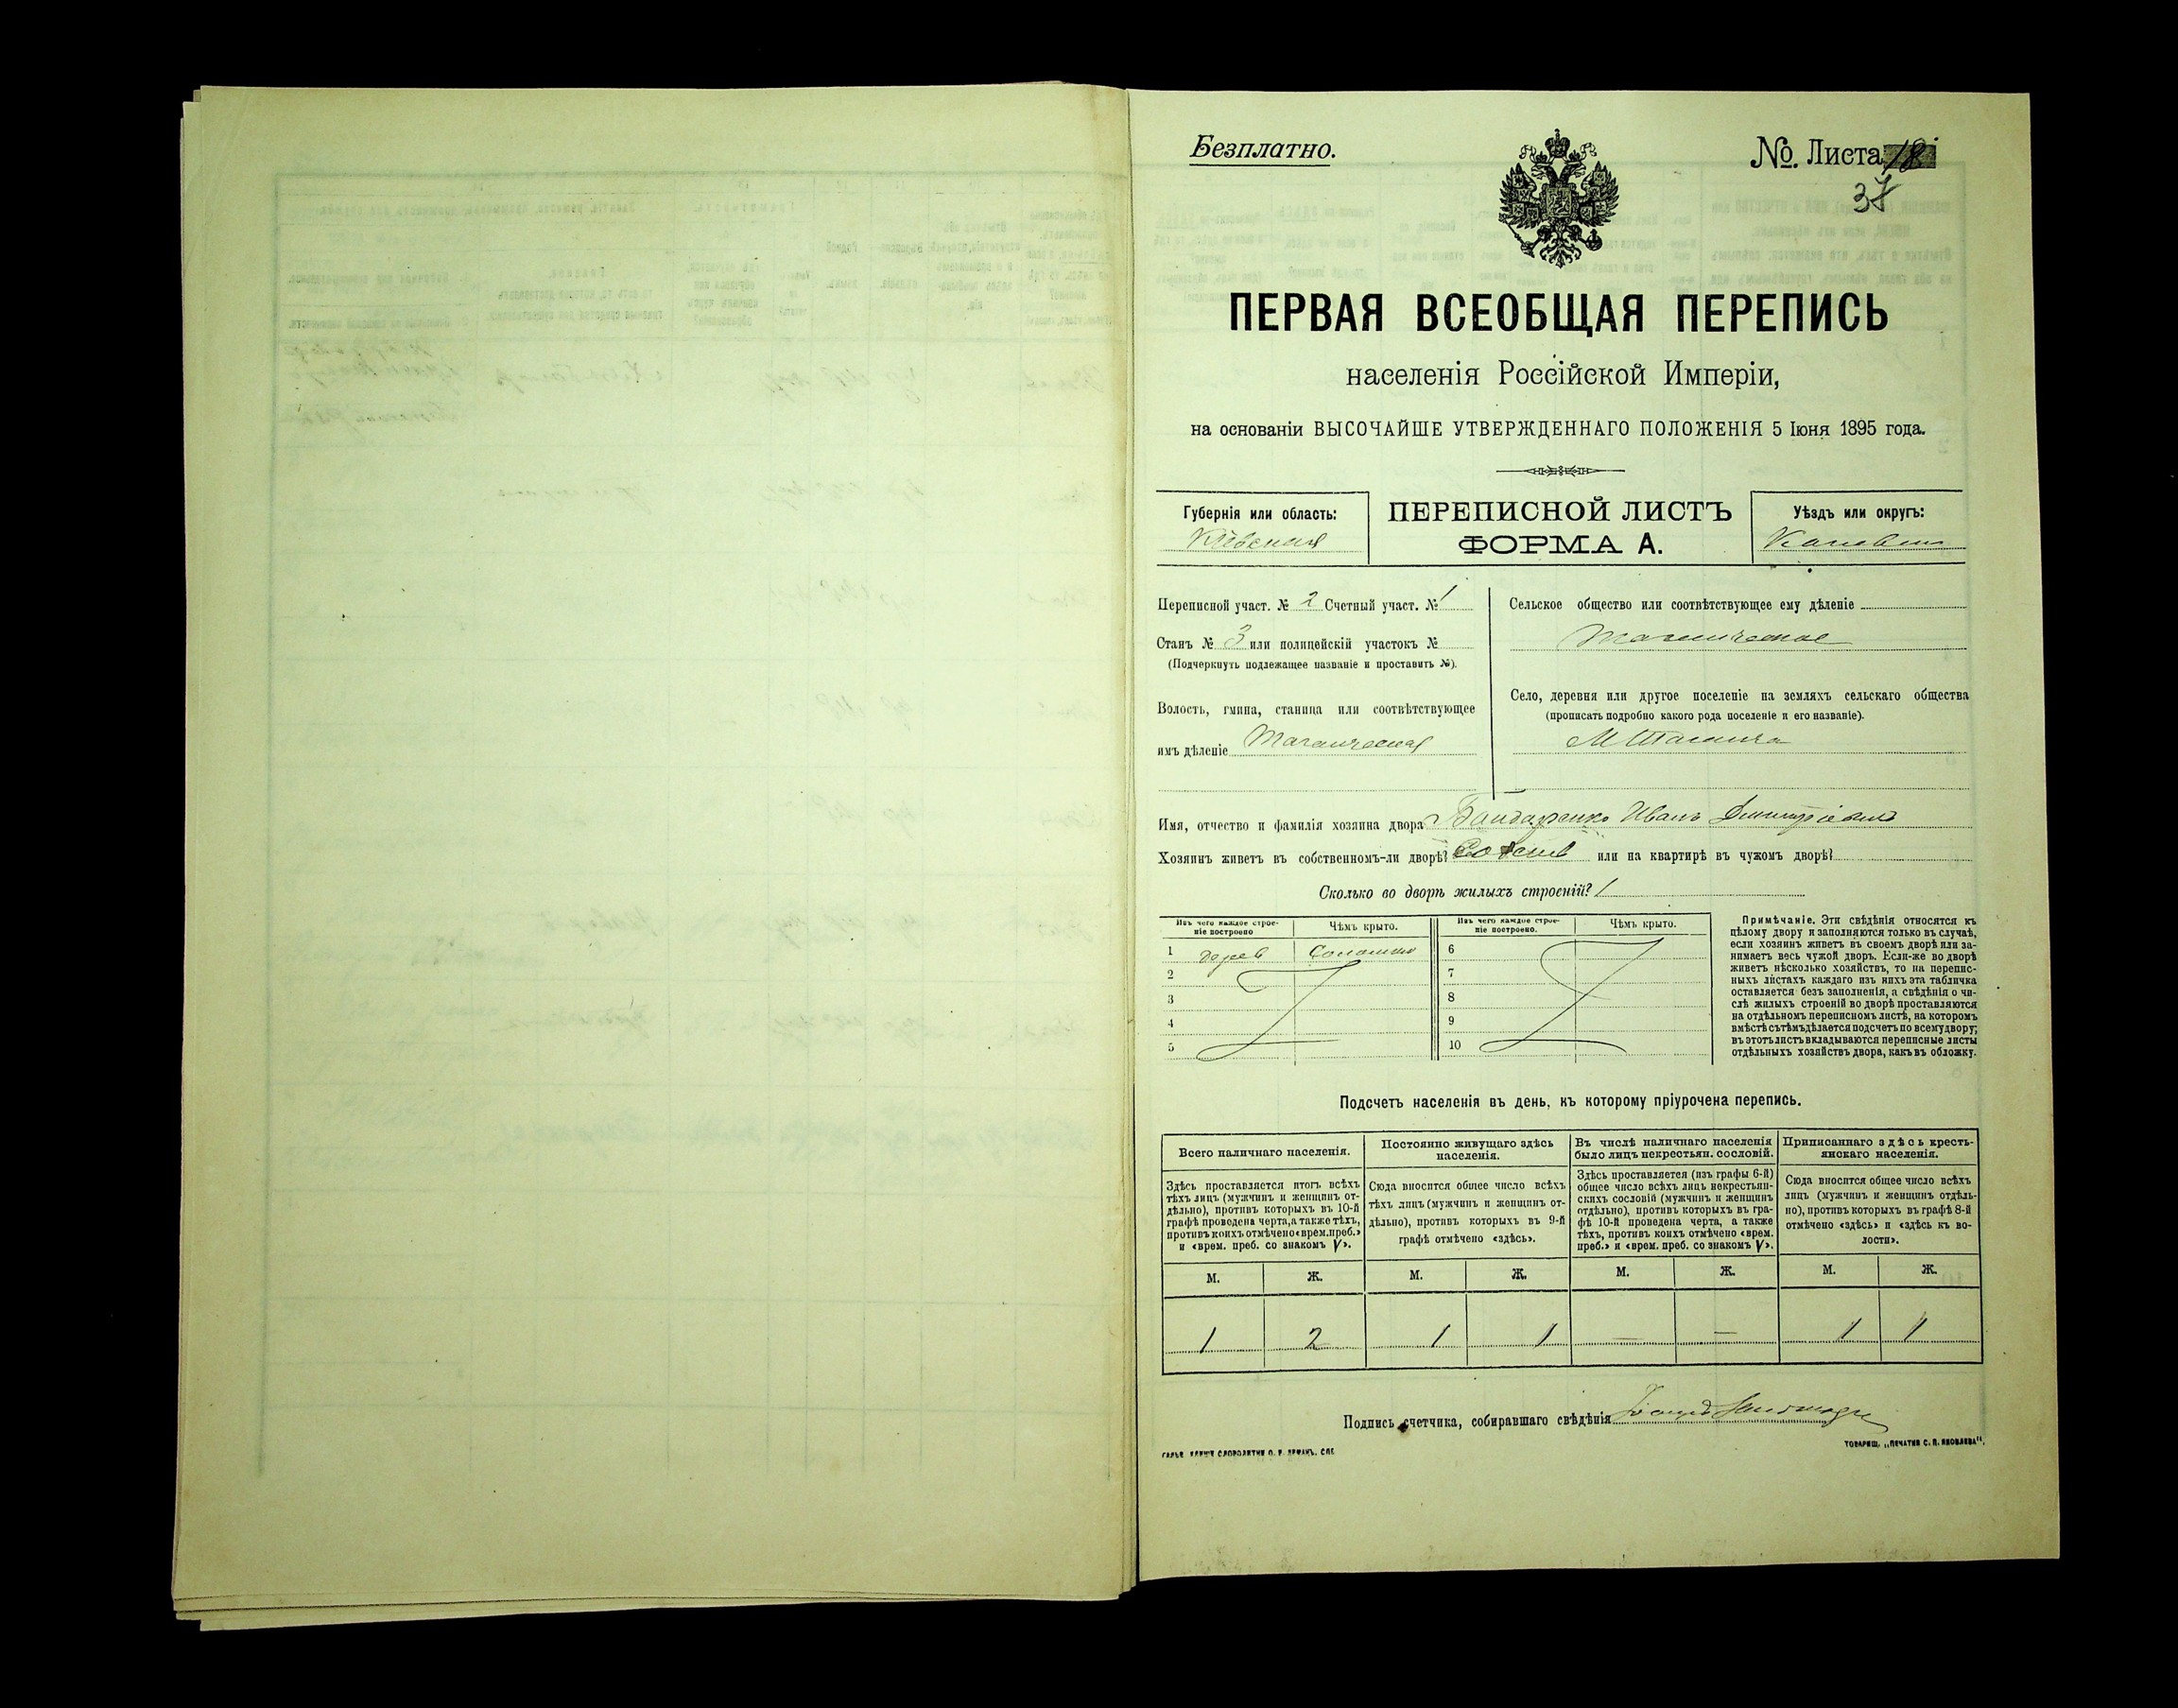 Безплатно.
№. Листа 18
37
ПЕРВАЯ ВСЕОБЩАЯ ПЕРЕПИСЬ
населенія Россійской Имперіи,
на основаніи ВЫСОЧАЙШЕ УТВЕРЖДЕННАГО ПОЛОЖЕНІЯ 5 Іюня 1895 года.
Губернія или область:
Кіевская
ПЕРЕПИСНОЙ ЛИСТЪ
ФОРМА А.
Уѣздъ или округъ:
Каневск
Переписной участ. № 2 Счетный участ. № 1
Станъ № 3 или полицейскій участокъ №
(Подчеркнуть подлежащее названіе и проставить №).
Волость, гмина, станица или соотвѣтствующее
имъ дѣленіе Таганческая
Сельское общество или соотвѣтствующее ему дѣленіе
Таганческое
Село, деревня или другое поселеніе на земляхъ сельскаго общества
(прописать подробно какого рода поселеніе и его названіе).
М Таганча
Имя, отчество и фамилія хозяина двора Бондаренко Иванъ Дмитріевичъ
Хозяинъ живетъ въ собственномъ-ли дворѣ? или на квартирѣ въ чужомъ дворѣ?
Сколько во дворѣ жилыхъ строеній? 1
Изъ чего каждое строе-
ніе построено
Чѣмъ крыто.
Изъ чего каждое строе-
ніе построено.
Чѣмъ крыто.
1 дерев Соломою
2
3
4
5
6
7
8
9
10
Примѣчаніе. Эти свѣдѣнія относятся къ
цѣлому двору и заполняются только въ случаѣ,
если хозяинъ живетъ въ своемъ дворѣ или за-
нимаетъ весь чужой дворъ. Если-же во дворѣ
живетъ нѣсколько хозяйствъ, то на перепис-
ныхъ листахъ каждаго изъ нихъ эта табличка
оставляется безъ заполненія, а свѣдѣнія о чи-
слѣ жилыхъ строеній во дворѣ проставляются
на отдѣльномъ переписномъ листѣ, на которомъ
вмѣстѣ съ тѣмъ дѣлается подсчетъ по всему двору;
въ этотъ листъ вкладываются переписные листы
отдѣльныхъ хозяйствъ двора, какъ въ обложку.
Подсчетъ населенія въ день, къ которому пріурочена перепись.
Всего наличнаго населенія.
Здѣсь проставляется итогъ всѣхъ
тѣхъ лицъ (мужчинъ и женщинъ от-
дѣльно), противъ которыхъ въ 10-й
графѣ проведена черта, а также тѣхъ,
противъ коихъ отмѣчено «врем. преб.»
и «врем. преб. со знакомъ V».
Постоянно живущаго здѣсь
населенія.
Сюда вносится общее число всѣхъ
тѣхъ лицъ (мужчинъ и женщинъ от-
дѣльно), противъ которыхъ въ 9-й
графѣ отмѣчено «здѣсь».
Въ числѣ наличнаго населенія
было лицъ некрестьян. сословій.
Здѣсь проставляется (изъ графы 6-й)
общее число всѣхъ лицъ некрестьян-
скихъ сословій (мужчинъ и женщинъ
отдѣльно), противъ которыхъ въ гра-
фѣ 10-й проведена черта, а также
тѣхъ, противъ коихъ отмѣчено «врем.
преб.» и «врем. преб. со знакомъ V».
Приписаннаго здѣсь кресть-
янскаго населенія.
Сюда вносится общее число всѣхъ
лицъ (мужчинъ и женщинъ отдѣль-
но), противъ которыхъ въ графѣ 8-й
отмѣчено «здѣсь» и «здѣсь къ во-
лости».
М. Ж. М. Ж. М. Ж. М. Ж.
1 2 1 1 — — 1 1
Подпись счетчика, собиравшаго свѣдѣнія
ТОВАРИЩ. „ПЕЧАТНЯ С. П. ЯКОВЛЕВА“.